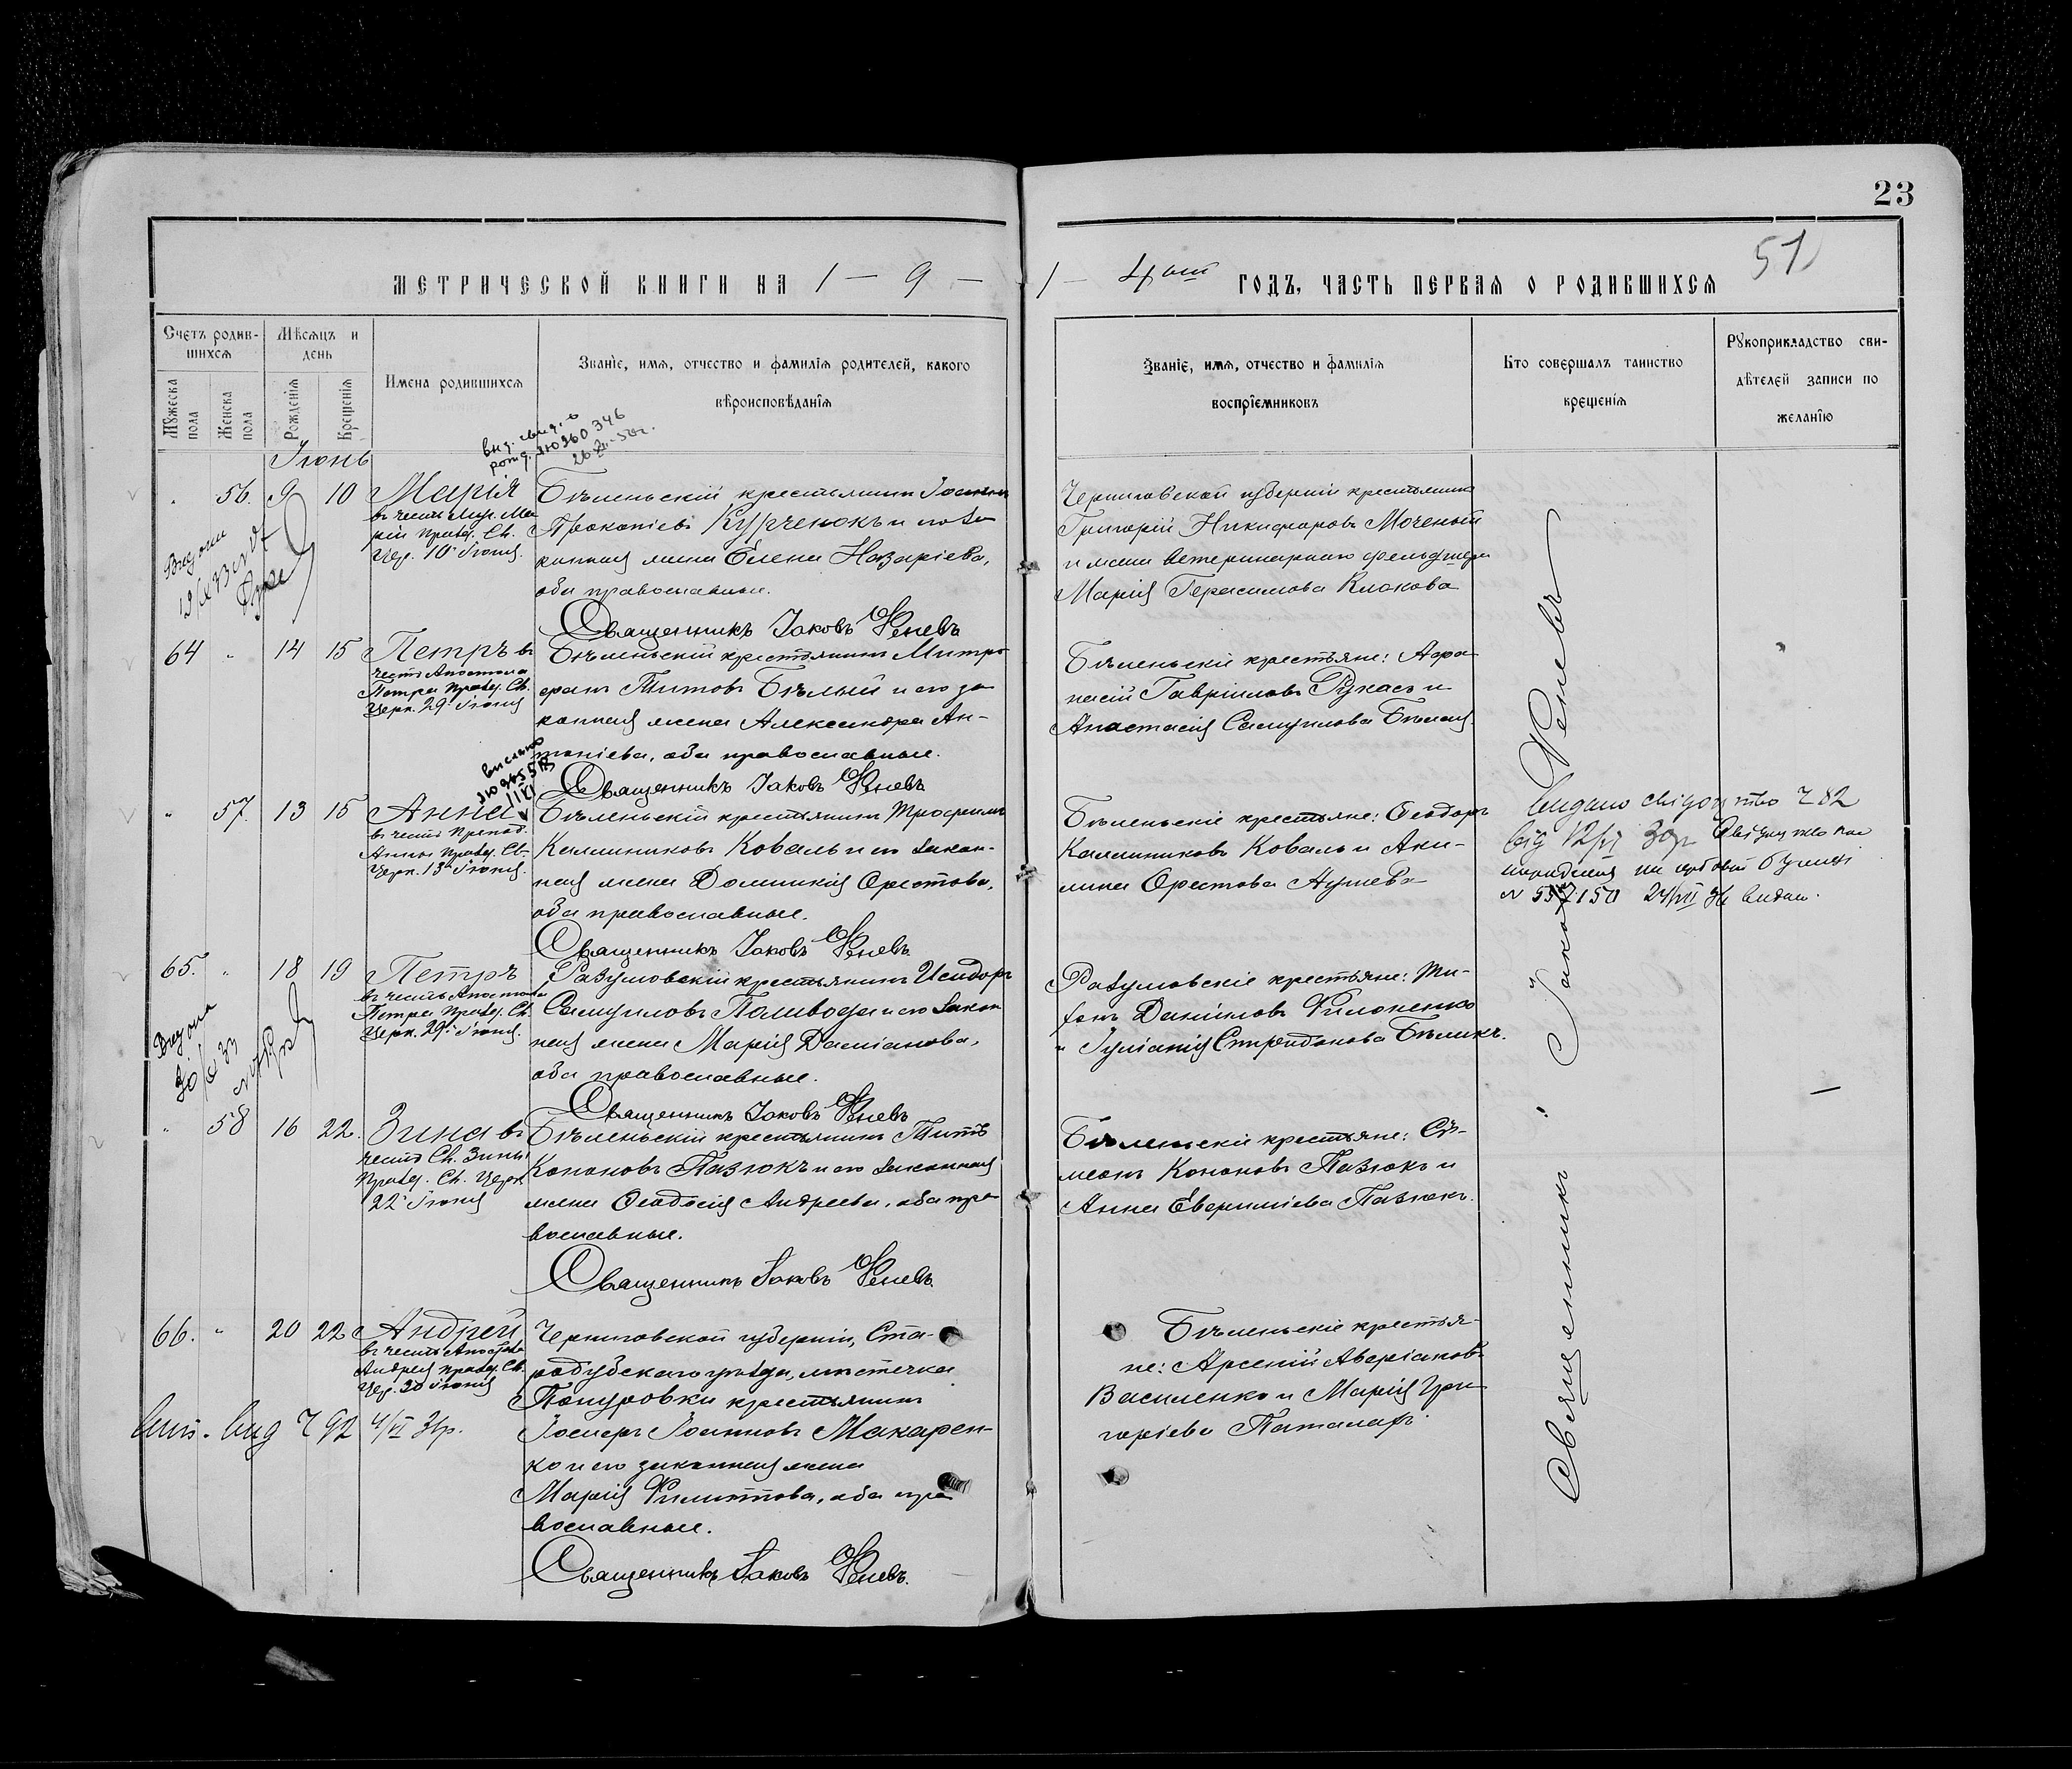 23
51
МЕТРИЧЕСКОЙ КНИГИ НА 1 — 9 —
1 — 4ый ГОДЪ, ЧАСТЬ ПЕРВАЯ О РОДИВШИХСЯ
Счетъ родив-
шихся
Мѣсяцъ и
день
Мужеска
пола
Женска
пола
Рожденія
Крещенія
Имена родившихся
Званіе, имя, отчество и фамилія родителей, какого
вѣроисповѣданія
Званіе, имя, отчество и фамилія
воспріемниковъ
Кто совершалъ таинство
крещенія
Рукоприкладство сви-
дѣтелей записи по
желанію
Іюнь
56. 9 10 Марія
ріи празд. Св.
Цер. 10 Іюня.
Бѣленьскій крестьянинъ Іоаннъ
Прокопіевъ Курченокъ и его за
конная жена Елена Назаріева,
оба православные.
Священникъ Іаковъ Феневъ
Черниговской губерніи крестьянинъ
Григорій Никифоровъ Моченый
и жена ветеринарнаго фельдшера
Марія Герасимова Клокова
64 " 14 15 Петръ въ
честь Апостола
Петра празд. Св.
Церк. 29 Іюня
Бѣленьскій крестьянинъ Митро
фанъ Титовъ Бѣлый и его за
конная жена Александра Ан-
тоніева, оба православные.
Священникъ Іаковъ Феневъ
Бѣленьскіе крестьяне: Афа
насій Гавріиловъ Рукасъ и
Анастасія Самуилова Бѣлая
" 57. 13 15 Анна
въ честь Препод.
Анны празд. Св.
Церк. 13 Іюня.
Бѣленьскій крестьянинъ Трофимъ
Каллиниковъ Коваль и его закон-
ная жена Домникія Орестова,
оба православные.
Священникъ Іаковъ Феневъ
Бѣленьскіе крестьяне: Ѳеодоръ
Каллиниковъ Коваль и Аки-
лина Орестова
65. " 18 19 Петръ
въ честь Апостола
Петра празд. Св.
Церк. 29 Іюня.
Разумовскій крестьянинъ Исидоръ
Самуиловъ Паливода и его закон
ная жена Марія Даміанова,
оба православные.
Священникъ Іаковъ Феневъ
Разумовскіе крестьяне: Ти-
фонъ Даніиловъ Филоненко
и Іуліанія Спиридонова Бѣликъ.
" 58 16 22. Зина въ
честь Св. Зины
празд. Св. Церк
22 Іюня
Бѣленьскій крестьянинъ Титъ
Кононовъ Пазюкъ и его законная
жена Ѳеодосія Андреева, оба пра
вославные.
Священникъ Іаковъ Феневъ.
Бѣленьскіе крестьяне: Си-
меонъ Кононовъ Пазюкъ и
Анна Евфиміева Пазюкъ.
66. " 20 22 Андрей
въ честь Апостола
Андрея празд. Св.
Цер. 30 Іюня
Черниговской губерніи, Ста-
родубскаго уѣзда, мѣстечка
Понуровки крестьянинъ
Іосифъ Іоанновъ Макарен-
ко и его законная жена
Марія Филиппова, оба пра
вославные.
Священникъ Іаковъ Феневъ.
Бѣленьскіе крестья-
не: Арсеній Аверіановъ
Василенко и Марія Гри
горіева Паталахъ.
Священникъ Іаковъ Феневъ